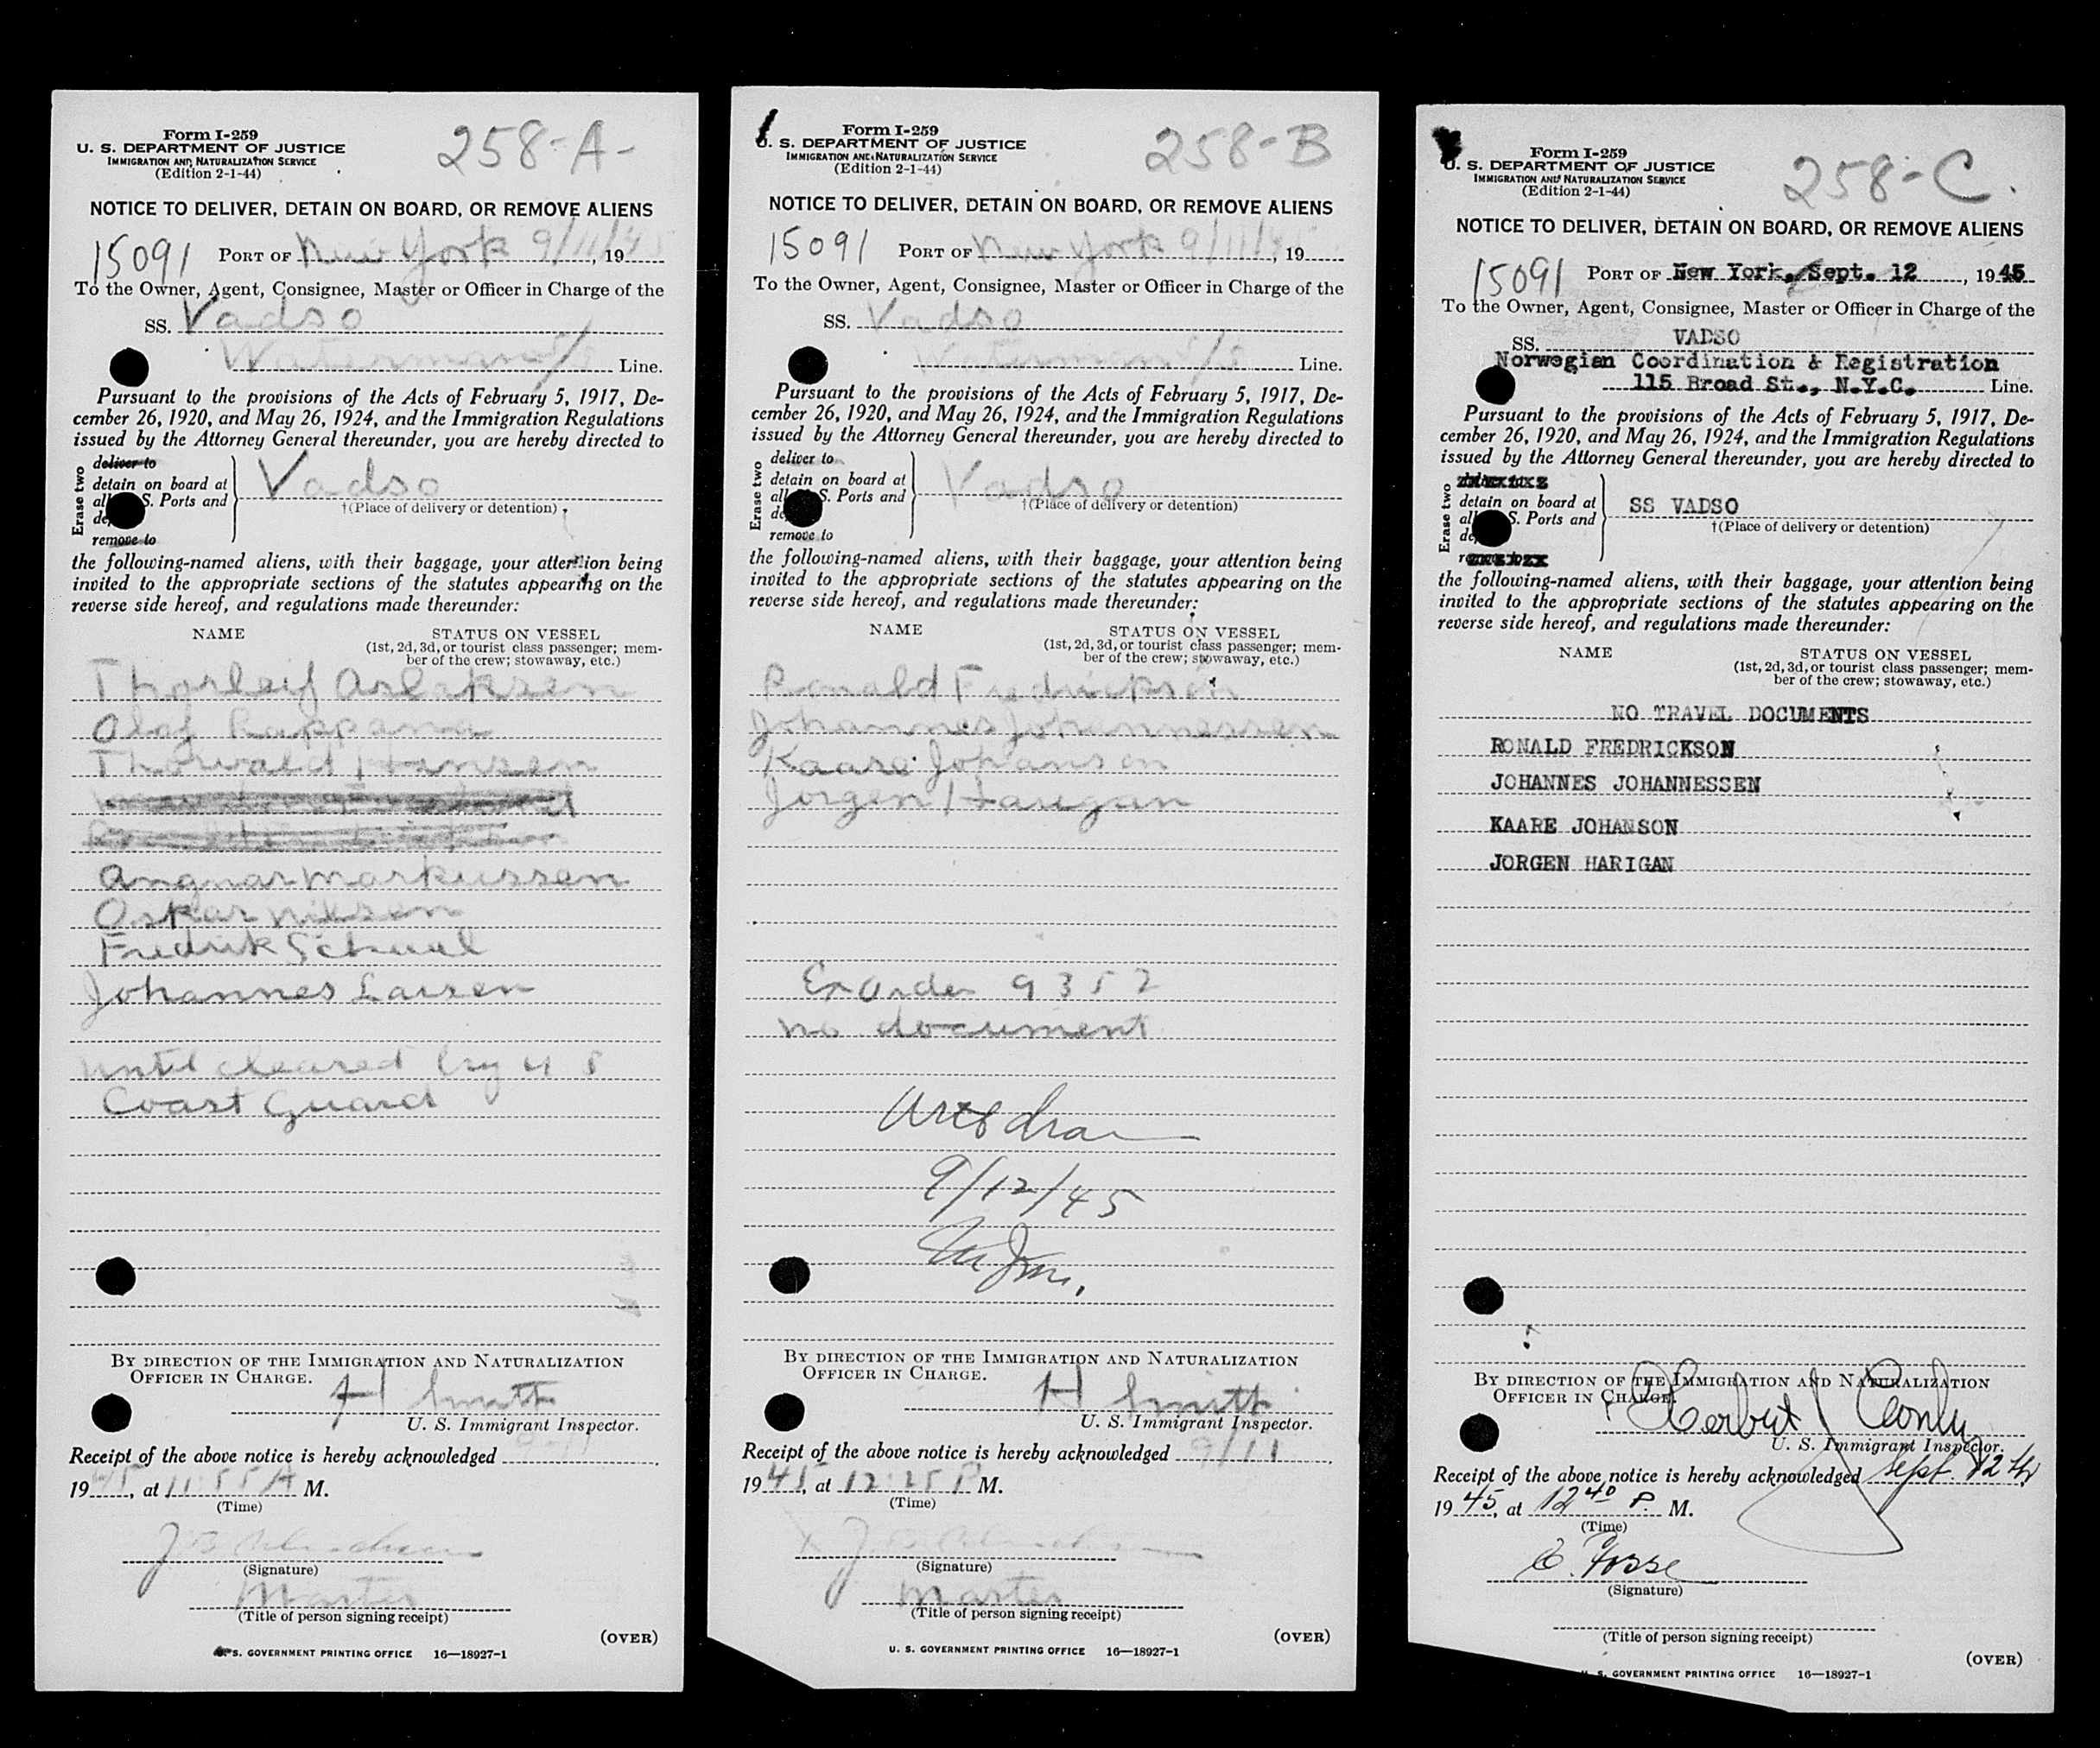 Form I-259
U. S. DEPARTMENT OF JUSTICE
IMMIGRATION AND NATURALIZATION SERVICE
(Edition 2-1-44)
258-A-
NOTICE TO DELIVER, DETAIN ON BOARD, OR REMOVE ALIENS
15091 PORT OF New York 9/11/45, 19
To the Owner, Agent, Consignee, Master or Officer in Charge of the
SS. Vadso
Waterman Line.
Pursuant to the provisions of the Acts of February 5, 1917, De-
cember 26, 1920, and May 26, 1924, and the Immigration Regulations
issued by the Attorney General thereunder, you are hereby directed to
Erase two
deliver to
detain on board at
all S. Ports and
de
remove to
Vadso
†(Place of delivery or detention)
the following-named aliens, with their baggage, your attention being
invited to the appropriate sections of the statutes appearing on the
reverse side hereof, and regulations made thereunder:
NAME STATUS ON VESSEL
(1st, 2d, 3d, or tourist class passenger; mem-
ber of the crew; stowaway, etc.)
Thorleif Aslaksen
Olaf Rappana
Thorvald Hansen
Angnar Markussen
Oskar Nilsen
Fredrik
Johannes Larsen
until cleared by U S
Coast Guard
BY DIRECTION OF THE IMMIGRATION AND NATURALIZATION
OFFICER IN CHARGE.
H Smith
U. S. Immigrant Inspector.
Receipt of the above notice is hereby acknowledged 9-11
1945, at 11:55 A M.
(Time)
(Signature)
Master
(Title of person signing receipt)
(OVER)
U. S. GOVERNMENT PRINTING OFFICE 16—18927-1
Form I-259
U. S. DEPARTMENT OF JUSTICE
IMMIGRATION AND NATURALIZATION SERVICE
(Edition 2-1-44)
258-B
NOTICE TO DELIVER, DETAIN ON BOARD, OR REMOVE ALIENS
15091 PORT OF New York 9/11/45, 19
To the Owner, Agent, Consignee, Master or Officer in Charge of the
SS. Vadso
Waterman Line.
Pursuant to the provisions of the Acts of February 5, 1917, De-
cember 26, 1920, and May 26, 1924, and the Immigration Regulations
issued by the Attorney General thereunder, you are hereby directed to
Erase two
deliver to
detain on board at
all S. Ports and
de
remove to
Vadso
†(Place of delivery or detention)
the following-named aliens, with their baggage, your attention being
invited to the appropriate sections of the statutes appearing on the
reverse side hereof, and regulations made thereunder:
NAME STATUS ON VESSEL
(1st, 2d, 3d, or tourist class passenger; mem-
ber of the crew; stowaway, etc.)
Ronald Fredrickson
Johannes Johannessen
Kaare Johanson
Jorgen Harigan
Ex Order 9352
no document
9/12/45
BY DIRECTION OF THE IMMIGRATION AND NATURALIZATION
OFFICER IN CHARGE.
H Smith
U. S. Immigrant Inspector.
Receipt of the above notice is hereby acknowledged 9/11
1945, at 12:25 P M.
(Time)
(Signature)
Master
(Title of person signing receipt)
(OVER)
U. S. GOVERNMENT PRINTING OFFICE 16—18927-1
Form I-259
U. S. DEPARTMENT OF JUSTICE
IMMIGRATION AND NATURALIZATION SERVICE
(Edition 2-1-44)
258-C.
NOTICE TO DELIVER, DETAIN ON BOARD, OR REMOVE ALIENS
15091 PORT OF New York, Sept. 12, 1945
To the Owner, Agent, Consignee, Master or Officer in Charge of the
SS. VADSO
Norwegian Coordination & Registration
115 Broad St., N.Y.C. Line.
Pursuant to the provisions of the Acts of February 5, 1917, De-
cember 26, 1920, and May 26, 1924, and the Immigration Regulations
issued by the Attorney General thereunder, you are hereby directed to
Erase two
detain on board at
all S. Ports and
de
SS VADSO
†(Place of delivery or detention)
the following-named aliens, with their baggage, your attention being
invited to the appropriate sections of the statutes appearing on the
reverse side hereof, and regulations made thereunder:
NAME STATUS ON VESSEL
(1st, 2d, 3d, or tourist class passenger; mem-
ber of the crew; stowaway, etc.)
NO TRAVEL DOCUMENTS
RONALD FREDRICKSON
JOHANNES JOHANNESSEN
KAARE JOHANSON
JORGEN HARIGAN
BY DIRECTION OF THE IMMIGRATION AND NATURALIZATION
OFFICER IN CHARGE.
Herbert J Conly
U. S. Immigrant Inspector.
Receipt of the above notice is hereby acknowledged Sept 12th
1945, at 12 40 P. M.
(Time)
E. Fosse
(Signature)
(Title of person signing receipt)
(OVER)
S. GOVERNMENT PRINTING OFFICE 16—18927-1